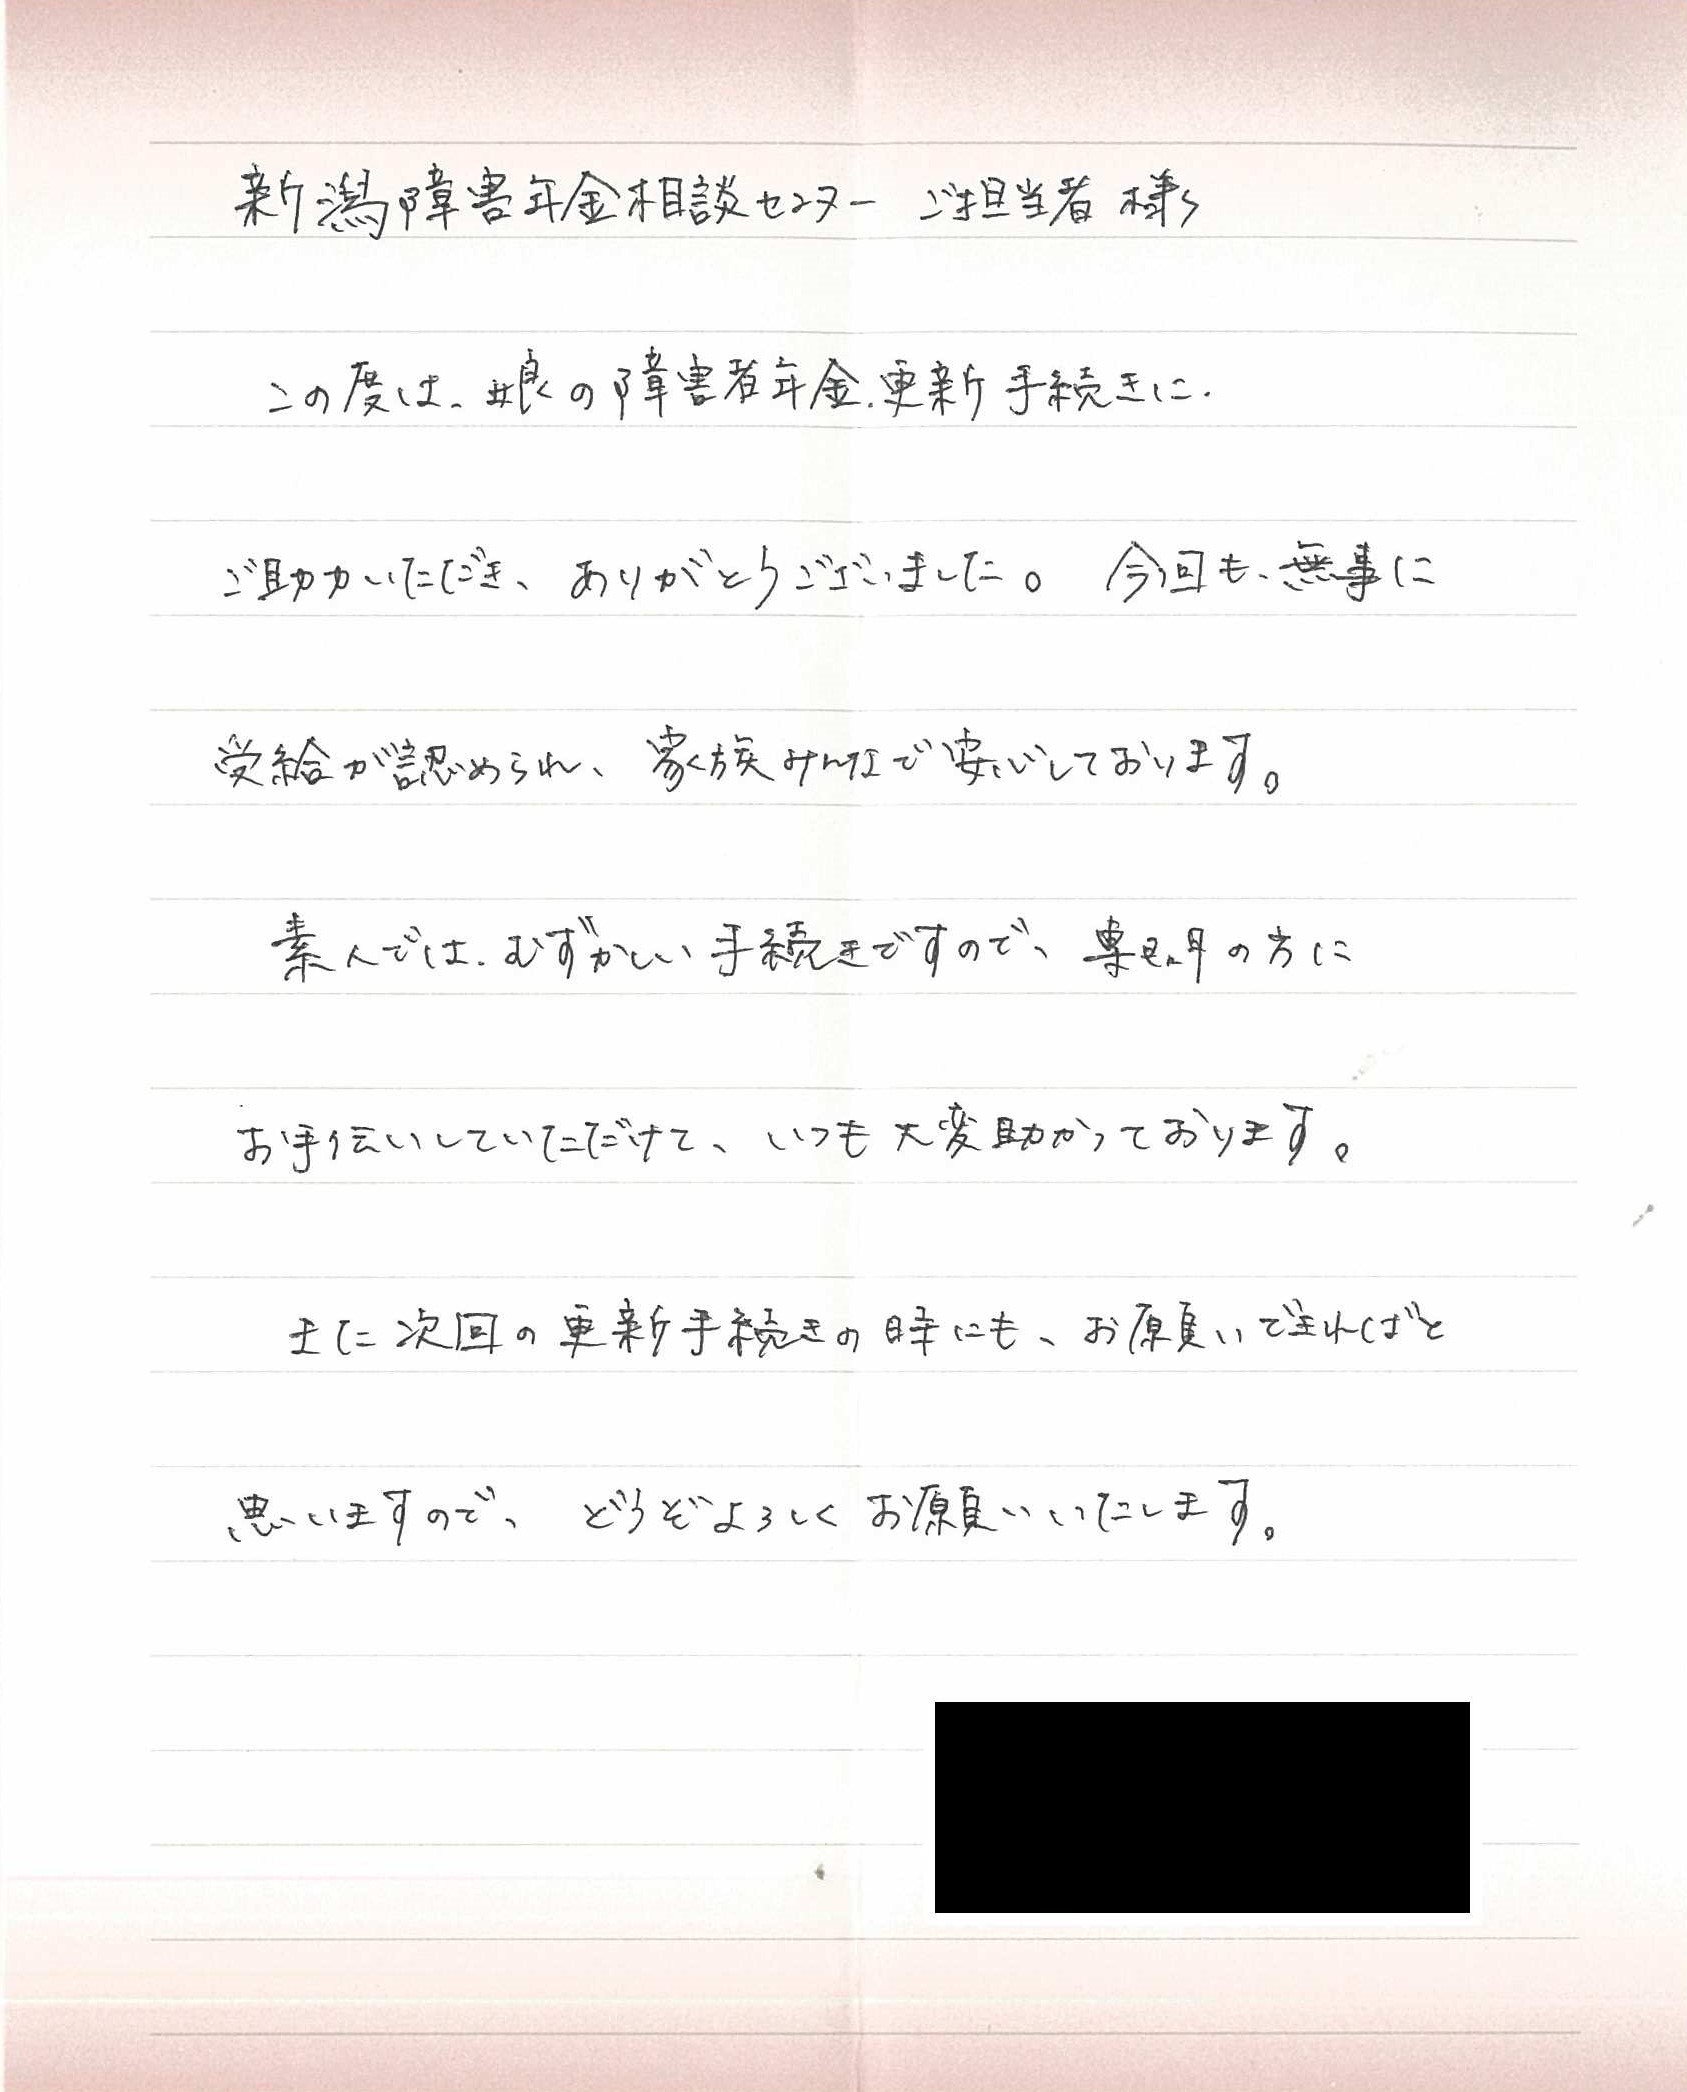 新潟障害年金相談センター ご担当者 様
この度は、娘の障害者年金、更新手続きに、
ご助力いただき、ありがとうございました。 今回も、無事に
受給が認められ、家族みんなで安心しております。
素人では、むずかしい手続きですので、専門の方に
お手伝いしていただけて、いつも大変助かっております。
また次回の更新手続きの時にも、お願いできればと
思いますので、どうぞよろしくお願いいたします。